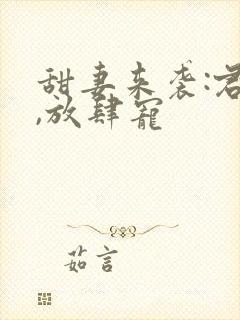 甜妻来袭:君
,放肆宠
茹言